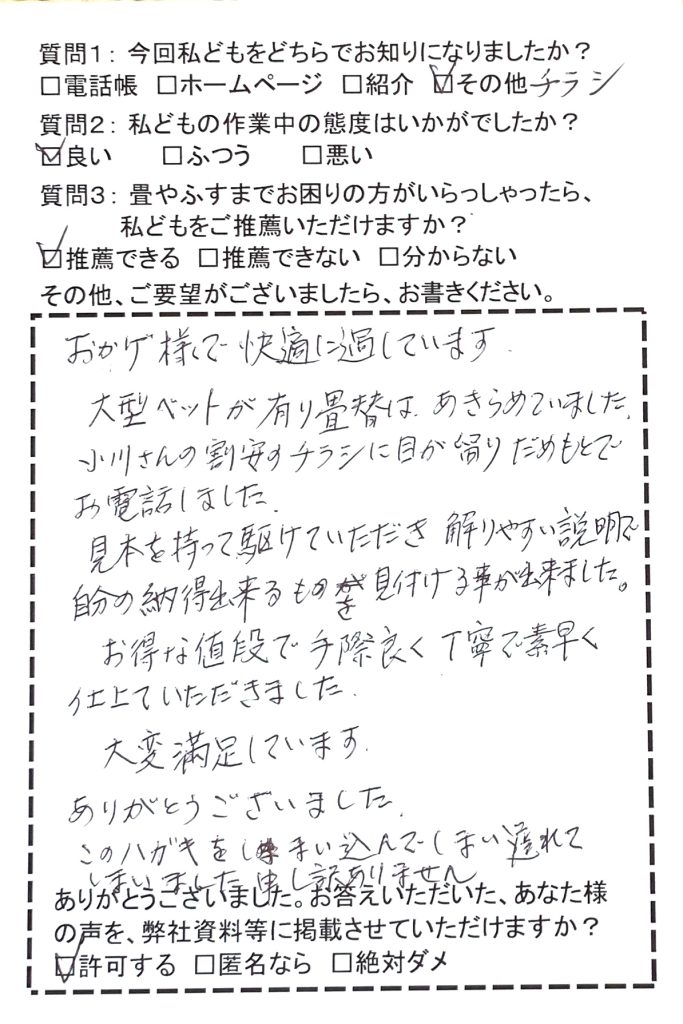 質問1：今回私どもをどちらでお知りになりましたか？
□電話帳 □ホームページ □紹介 ☑その他 チラシ
質問2：私どもの作業中の態度はいかがでしたか？
☑良い □ふつう □悪い
質問3：畳やふすまでお困りの方がいらっしゃったら、
私どもをご推薦いただけますか？
☑推薦できる □推薦できない □分からない
その他、ご要望がございましたら、お書きください。
おかげ様で快適に過しています.
大型ベットが有り畳替は、あきらめていました.
小川さんの割安のチラシに目が留り だめもとで
お電話しました.
見本を持って駆けていただき 解りやすい説明で
自分の納得出来るものを見付ける事が出来ました。
お得な値段で手際良く丁寧で素早く
仕上ていただきました.
大変満足しています.
ありがとうございました.
このハガキをしまい込んでしまい遅れて
しまいました 申し訳ありません
ありがとうございました。お答えいただいた、あなた様
の声を、弊社資料等に掲載させていただけますか？
☑許可する □匿名なら □絶対ダメ